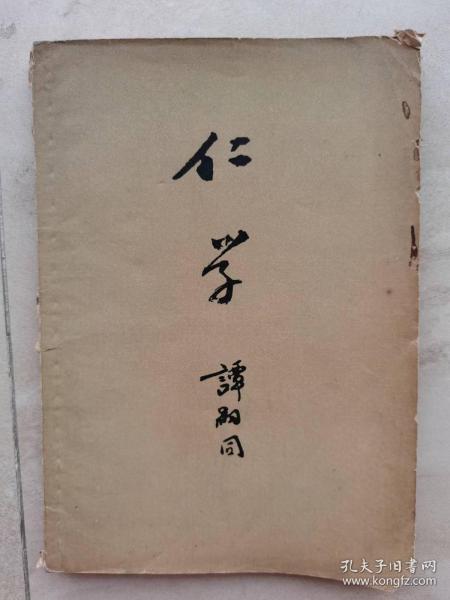 仁学
譚嗣同
孔夫子旧书网
www.kongfz.com